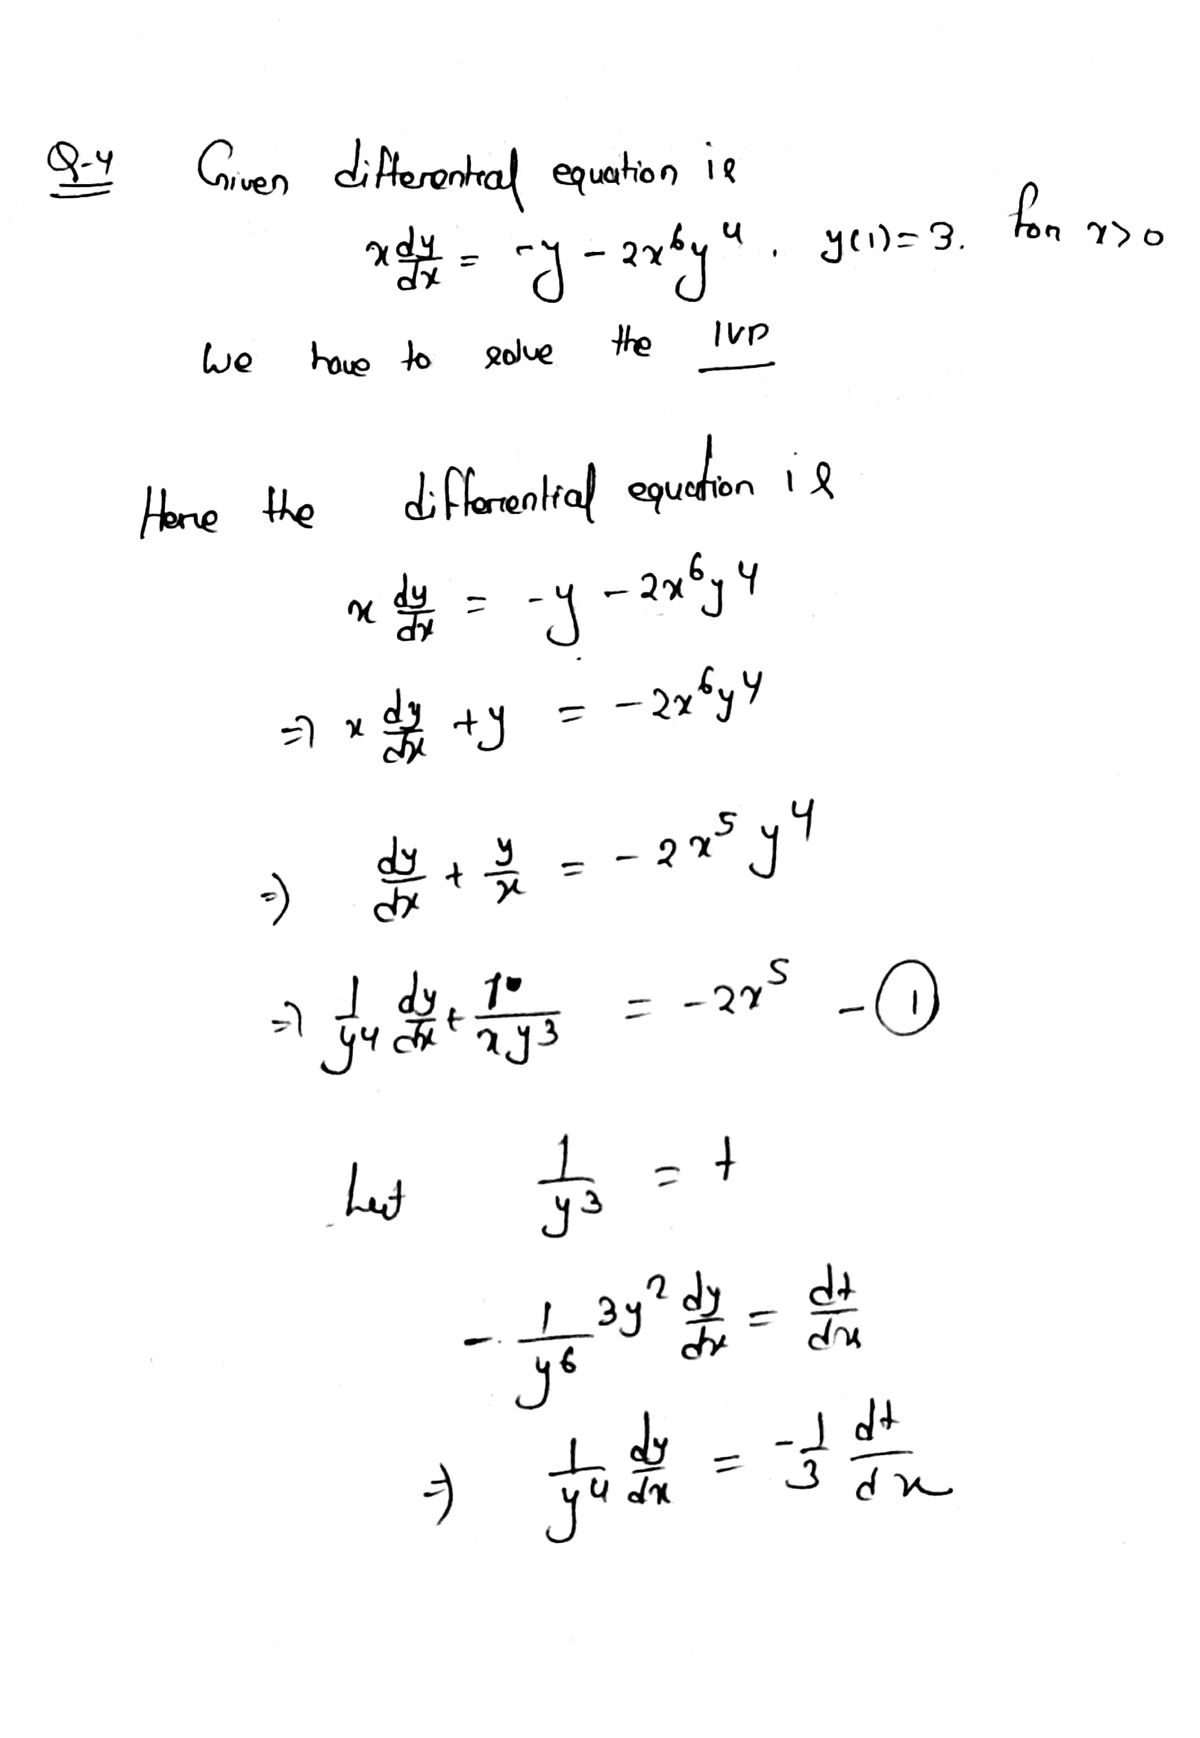 Q-4 Given differential equation is
x dy/dx = -y - 2x^6y^4. y(1)=3. for x>0
We have to solve the IVP
Here the differential equation is
x dy/dx = -y - 2x^6y^4
=> x dy/dx + y = -2x^6y^4
=> dy/dx + y/x = -2x^5 y^4
=> 1/y^4 dy/dx + 1/(xy^3) = -2x^5 - ①
Let 1/y^3 = t
- 1/y^6 3y^2 dy/dx = dt/dx
=> 1/y^4 dy/dx = -1/3 dt/dx